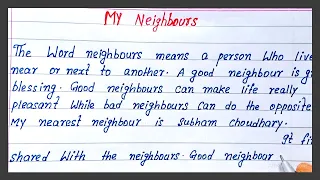 My Neighbours
The Word neighbours means a person Who live
near or next to another. A good neighbour is
blessing. Good neighbours can make life really
pleasant While bad neighbours Can do the opposite
My nearest neighbour is subham choudhary.
shared With the neighbours. Good neighbour